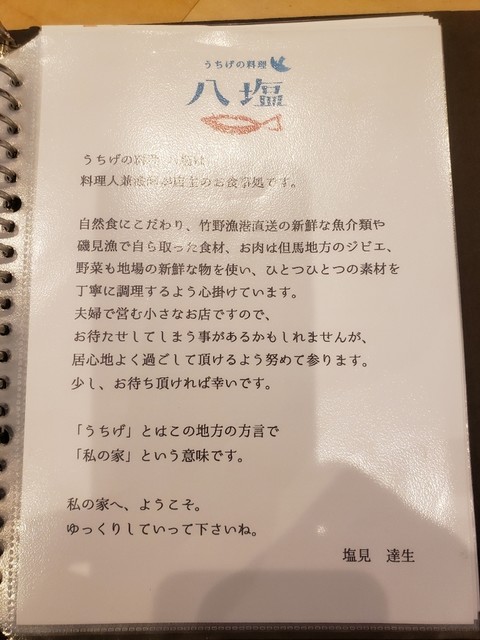 うちげの料理
八塩
うちげの料理 八塩は
料理人兼漁師が店主のお食事処です。
自然食にこだわり、竹野漁港直送の新鮮な魚介類や
磯見漁で自ら取った食材、お肉は但馬地方のジビエ、
野菜も地場の新鮮な物を使い、ひとつひとつの素材を
丁寧に調理するよう心掛けています。
夫婦で営む小さなお店ですので、
お待たせしてしまう事があるかもしれませんが、
居心地よく過ごして頂けるよう努めて参ります。
少し、お待ち頂ければ幸いです。
「うちげ」とはこの地方の方言で
「私の家」という意味です。
私の家へ、ようこそ。
ゆっくりしていって下さいね。
塩見 達生